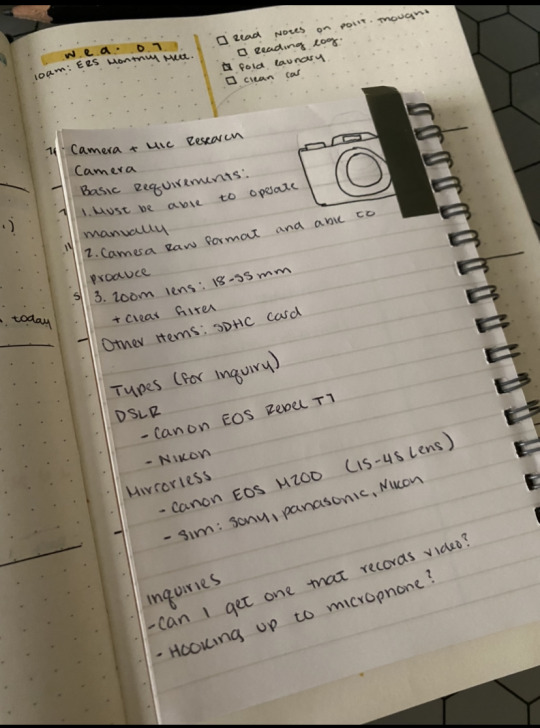 wed. 07
10am: ERS Monthly Meet.
Read Notes on Polit. Thought
Reading log.
Fold laundry
Clean car
Camera + Mic Research
Camera
Basic Requirements:
1. Must be able to operate
manually
2. Camera Raw format and able to
produce
3. Zoom lens: 18-55mm
+ clear filter
Other items: SDHC card
Types (for inquiry)
DSLR
- Canon EOS Rebel T7
- Nikon
Mirrorless
- Canon EOS M200 (15-45 Lens)
- Sim: Sony, panasonic, Nikon
Inquiries
- Can I get one that records video?
- Hooking up to microphone?
today